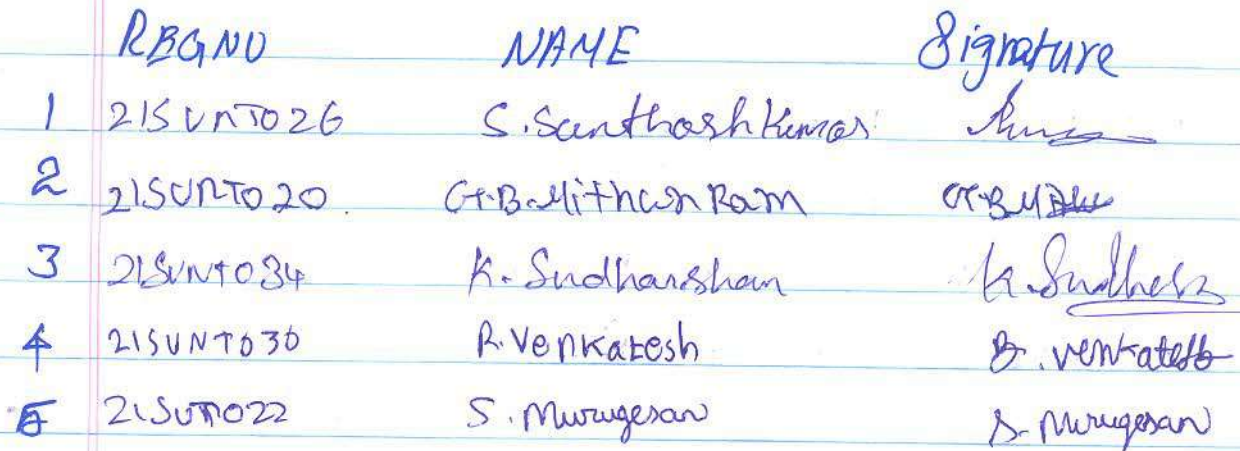 REGNO NAME Signature
1 21SUNT026 S. Santhosh Kumar
2 21SUNT020. G.B. Mithun Ram G.B.M
3 21SUNT034 K. Sudharshan K. Sudhar
4 21SUNT030 R. Venkatesh R. Venkatesh
5 21SUNT022 S. Murugesan S. Murugesan